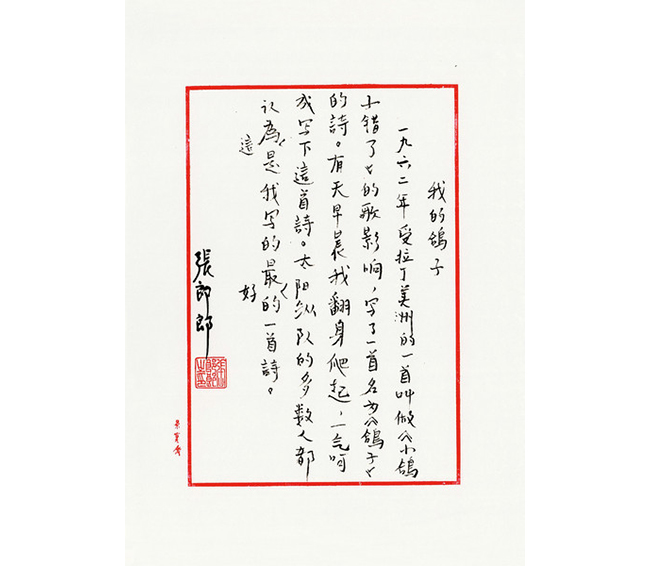 我的鸽子
一九六二年受拉丁美洲的一首叫做《小鸽
子错了》的歌影响，写了一首名为《鸽子》
的詩。有天早晨我翻身爬起，一气呵
成写下這首詩。太阳纵队的多数人都
认為這是我写的最好的一首詩。
張郎郎
荣宝斋